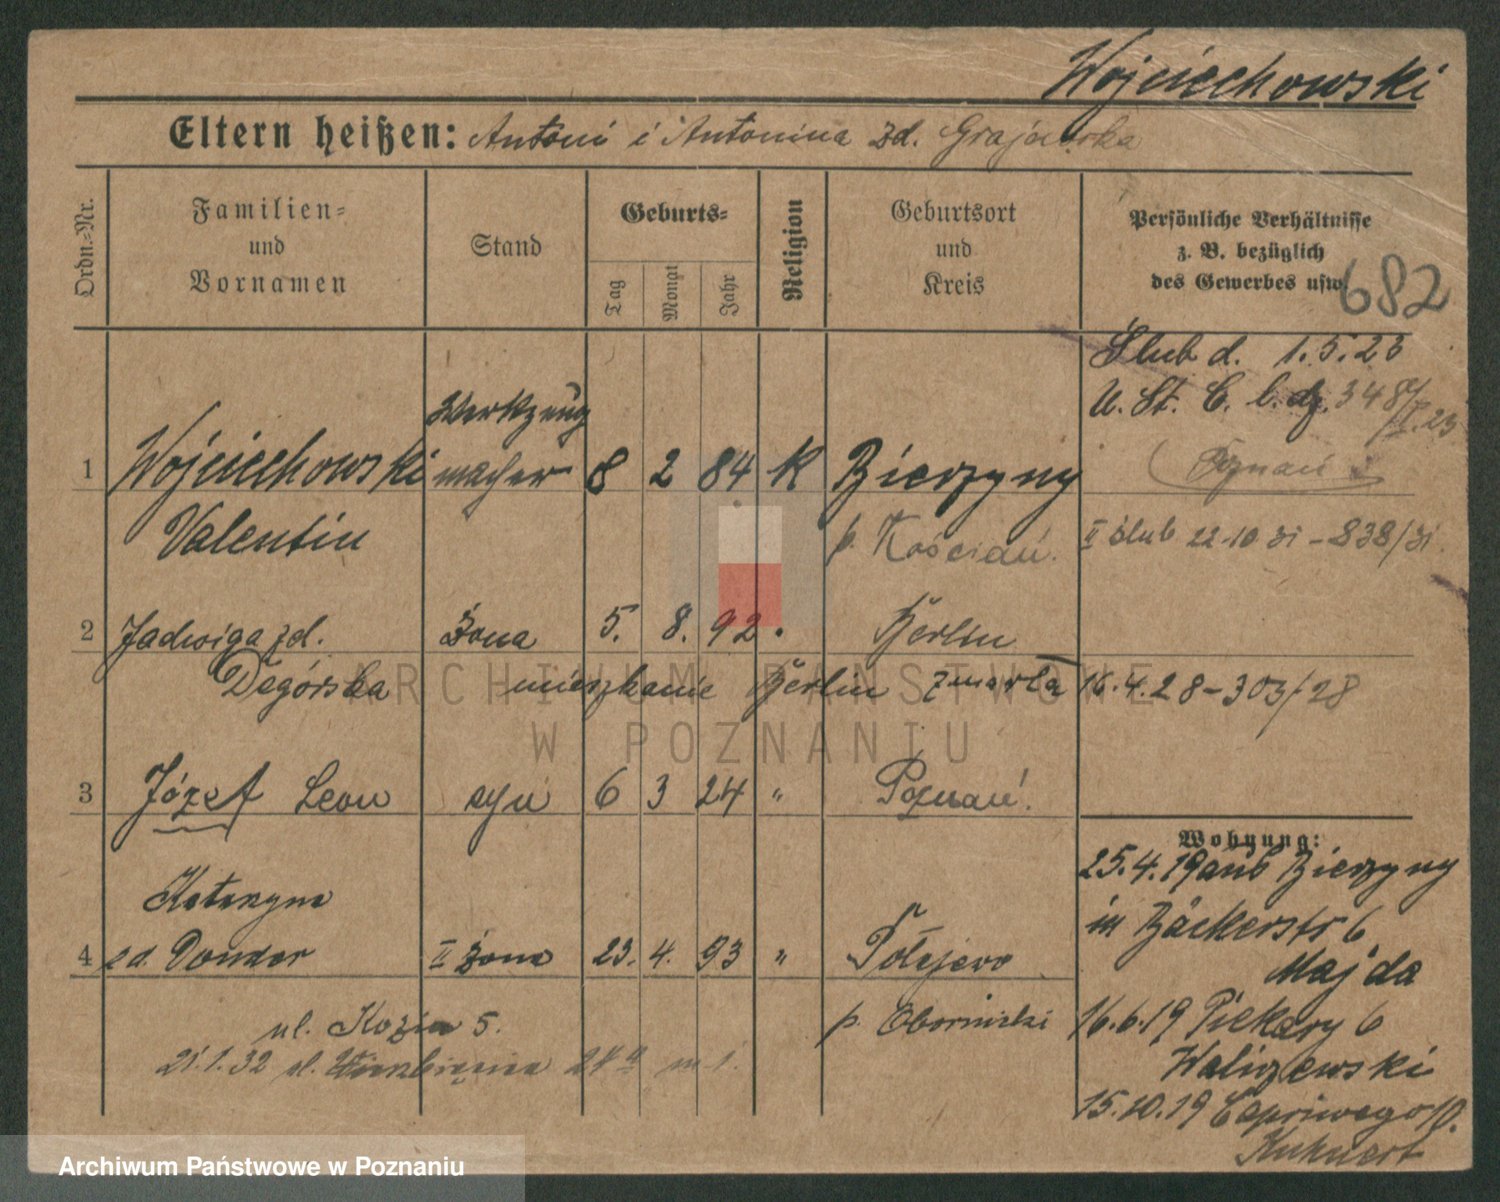 Wojciechowski
Eltern heißen: Antoni i Antonina zd. Grajewska
Ordn.-Nr.
Familien-
und
Vornamen
Stand
Geburts-
Tag
Monat
Jahr
Religion
Geburtsort
und
Kreis
Persönliche Verhältnisse
z. B. bezüglich
des Gewerbes usw.
682
Ślub d. 1.5.23
U. St. C. l. dz. 348/II.23
(Poznań)
1 Wojciechowski Werkzeug
macher 8 2 84 K Bierzyny
Valentin p. Kościan. II ślub 22.10 31 - 838/31.
2 Jadwiga zd. Żona 5. 8. 92 Berlin
Degórska mieszkanie Berlin zmarła 16.4.28 - 303/28
3 Józef Leon syn 6 3 24 " Poznań.
Katarzyna
4 zd. Donder II żona 23. 4. 93 " Połajewo
p. Obornicki
ul. Kozia 5.
21.1.32 ul. Wierzbięcice 24a m 1.
Wohnung:
25.4.19 aus Bierzyny
in Bäckerstr 6
Majda
16.6.19 Piekary 6
Waliszewski
15.10.19 Capriwego
Kuhnert
ARCHIWUM PAŃSTWOWE
W POZNANIU
Archiwum Państwowe w Poznaniu